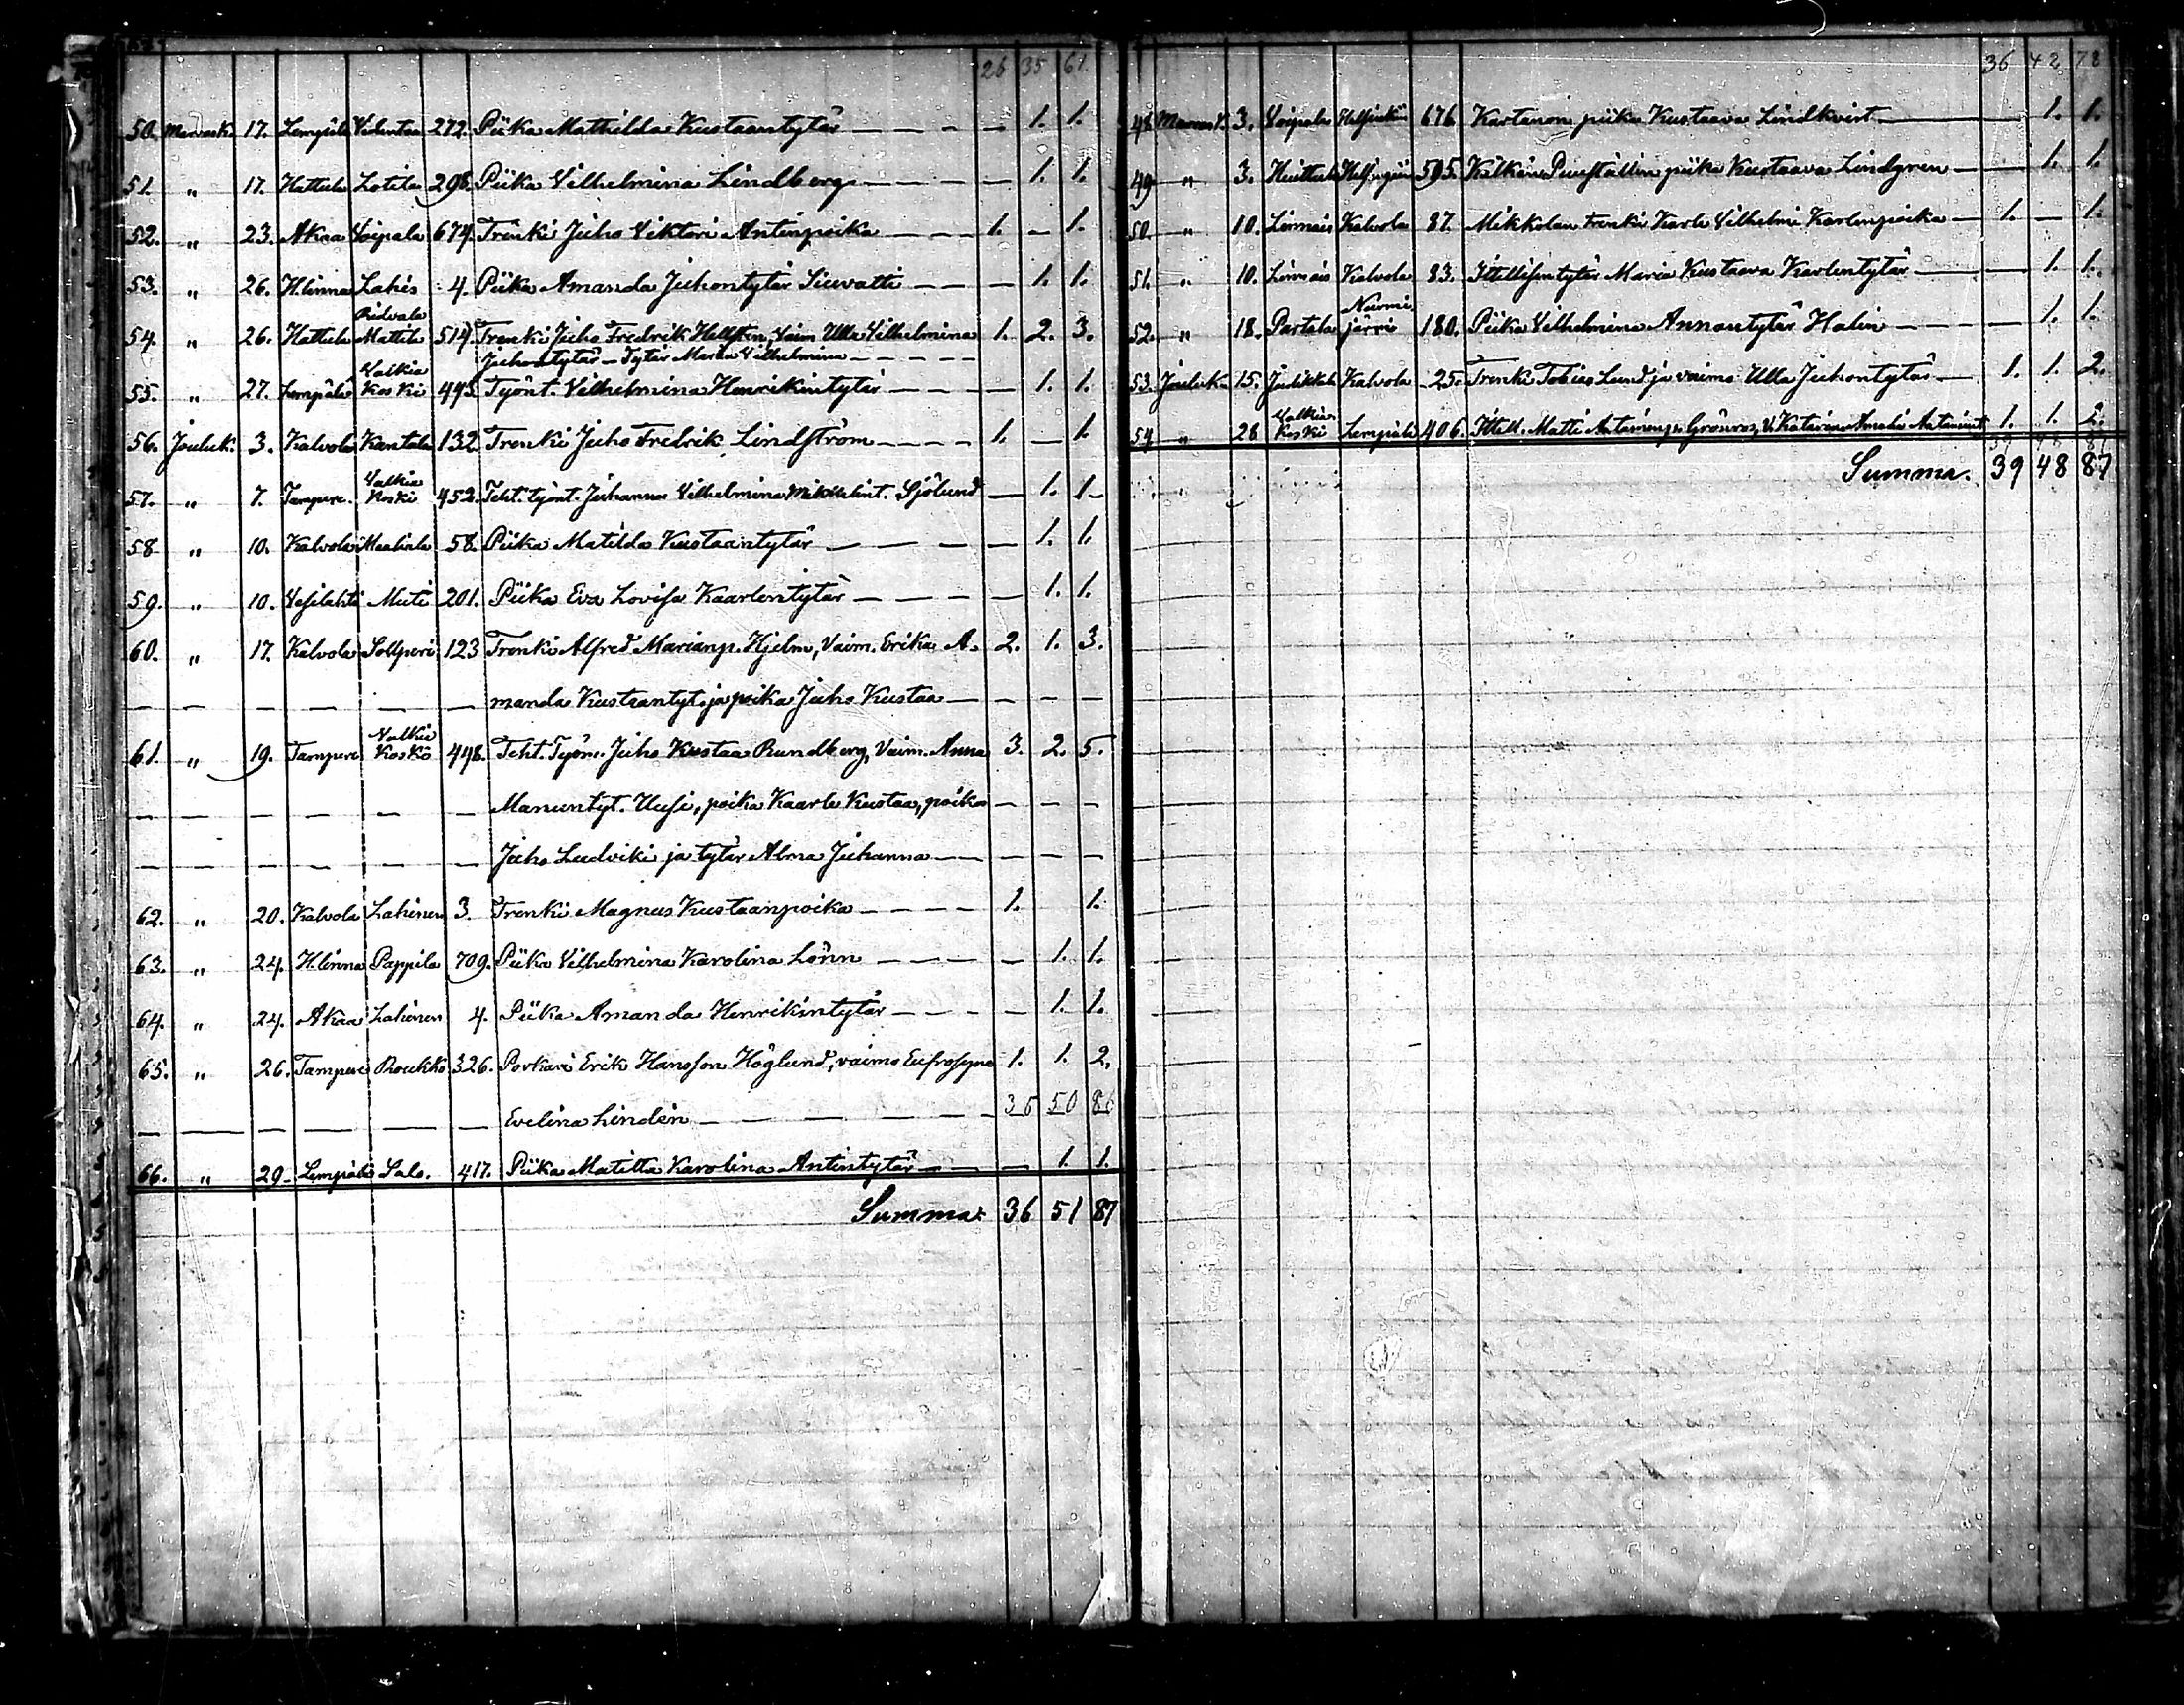 26 35 61
50. Marrask. 17. Lempälä Videntaa 272. Piika Mathilda Kustaantytär — — — — 1. 1.
51. " 17. Hattula Lotila 298. Piika Vilhelmina Lindberg — — — — 1. 1.
52. " 23. Akaa Voipala 674. Trenki Juho Viktori Antinpoika — — — 1. — 1.
53. " 26. H.linna Lahis 4. Piika Amanda Juhontytär — — — 1. 1.
Ridvala
54. " 26. Hattula Mattila 514. Trenki Juho Fredrik Hellsten, Vaim Ulla Vilhelmina 1. 2. 3.
Juhontytär — Tytär Maria Vilhelmina — — — — —
Valkia
55. " 27. Lempälä Koski 493. Työnt. Vilhelmina Henrikintytär — — — — 1. 1.
56. Jouluk. 3. Kalvola Kantala 132. Trenki Juho Fredrik Lindström — — — — 1. — 1.
Valkia
57. " 7. Tampere. Koski 452. Teht. työnt. Juhanna Vilhelmina Mikkelint. Sjölund — 1. 1.
58 " 10. Kalvola 58. Piika Matilda Kustaantytär — — — — — 1. 1.
59. " 10. Vesilahti Muti 201. Piika Eva Lovisa Kaarlentytär — — — — — 1. 1.
60. " 17. Kalvola Sollperi 123 Trenki Alfred Marianp. Hjelm, Vaim. Erika A- 2. 1. 3.
— — — — — — manda Kustaantyt. ja poika Juho Kustaa — — — —
Valkia
61. " 19. Tampere Koski 448. Teht. Työm. Juho Kustaa Rundberg, Vaim. Anna 3. 2. 5.
— — — — — — Manuntyt. Uusi, poika Kaarle Kustaa, poika — — —
— — — — — — Juho Ludviki ja tytär Alma Juhanna — — — — —
62. " 20. Kalvola Lahinen 3. Trenki Magnus Kustaanpoika — — — — 1. 1.
63. " 24. H.linna Pappila 709. Piika Vilhelmina Karolina Lönn — — — — 1. 1.
64. " 24. Akaa Lahinen 4. Piika Amanda Henrikintytär — — — — — 1. 1.
65. " 26. Tampere Roukko 326. Porkari Erik Hansson Höglund, vaimo Eufrosyne 1. 1. 2.
— — — — — — Evelina Lindén — — — — — 36 50 86
66. " 29. Lempälä Salo. 417. Piika Matilta Karolina Antintytär — — — 1. 1.
Summa: 36 51 87
36 42 78
48 Marras k. 3. Voipala Helsinki 676. Kartanon piika Kustaava Lindkvist — — 1. 1.
49 " 3. Huittula Helsingin 505. piika Kustaava Lindgren — — 1. 1.
50. " 10. Linnais Kalvola 87. Mikkolan trenki Karle Vilhelmi Karlenpoika — 1. — 1.
51. " 10. Linnais Kalvola 83. Ittellisentytär Maria Kustaava Karlentytär — — 1. 1.
Nurmi
52. " 18. Partala järvi 180. Piika Vilhelmina Annantytär Halin — — — 1. 1.
53. Jouluk. 15. Judikkala Kalvola 25. Trenki Tobias Lund ja vaimo Ulla Juhontytär — 1. 1. 2.
Valkia
54 " 28 Koski Lempälä 406. Ittell. Matti Antaminp. Grönroos, V. Katarina Amalia 1. 1. 2.
Summa. 39 48 87